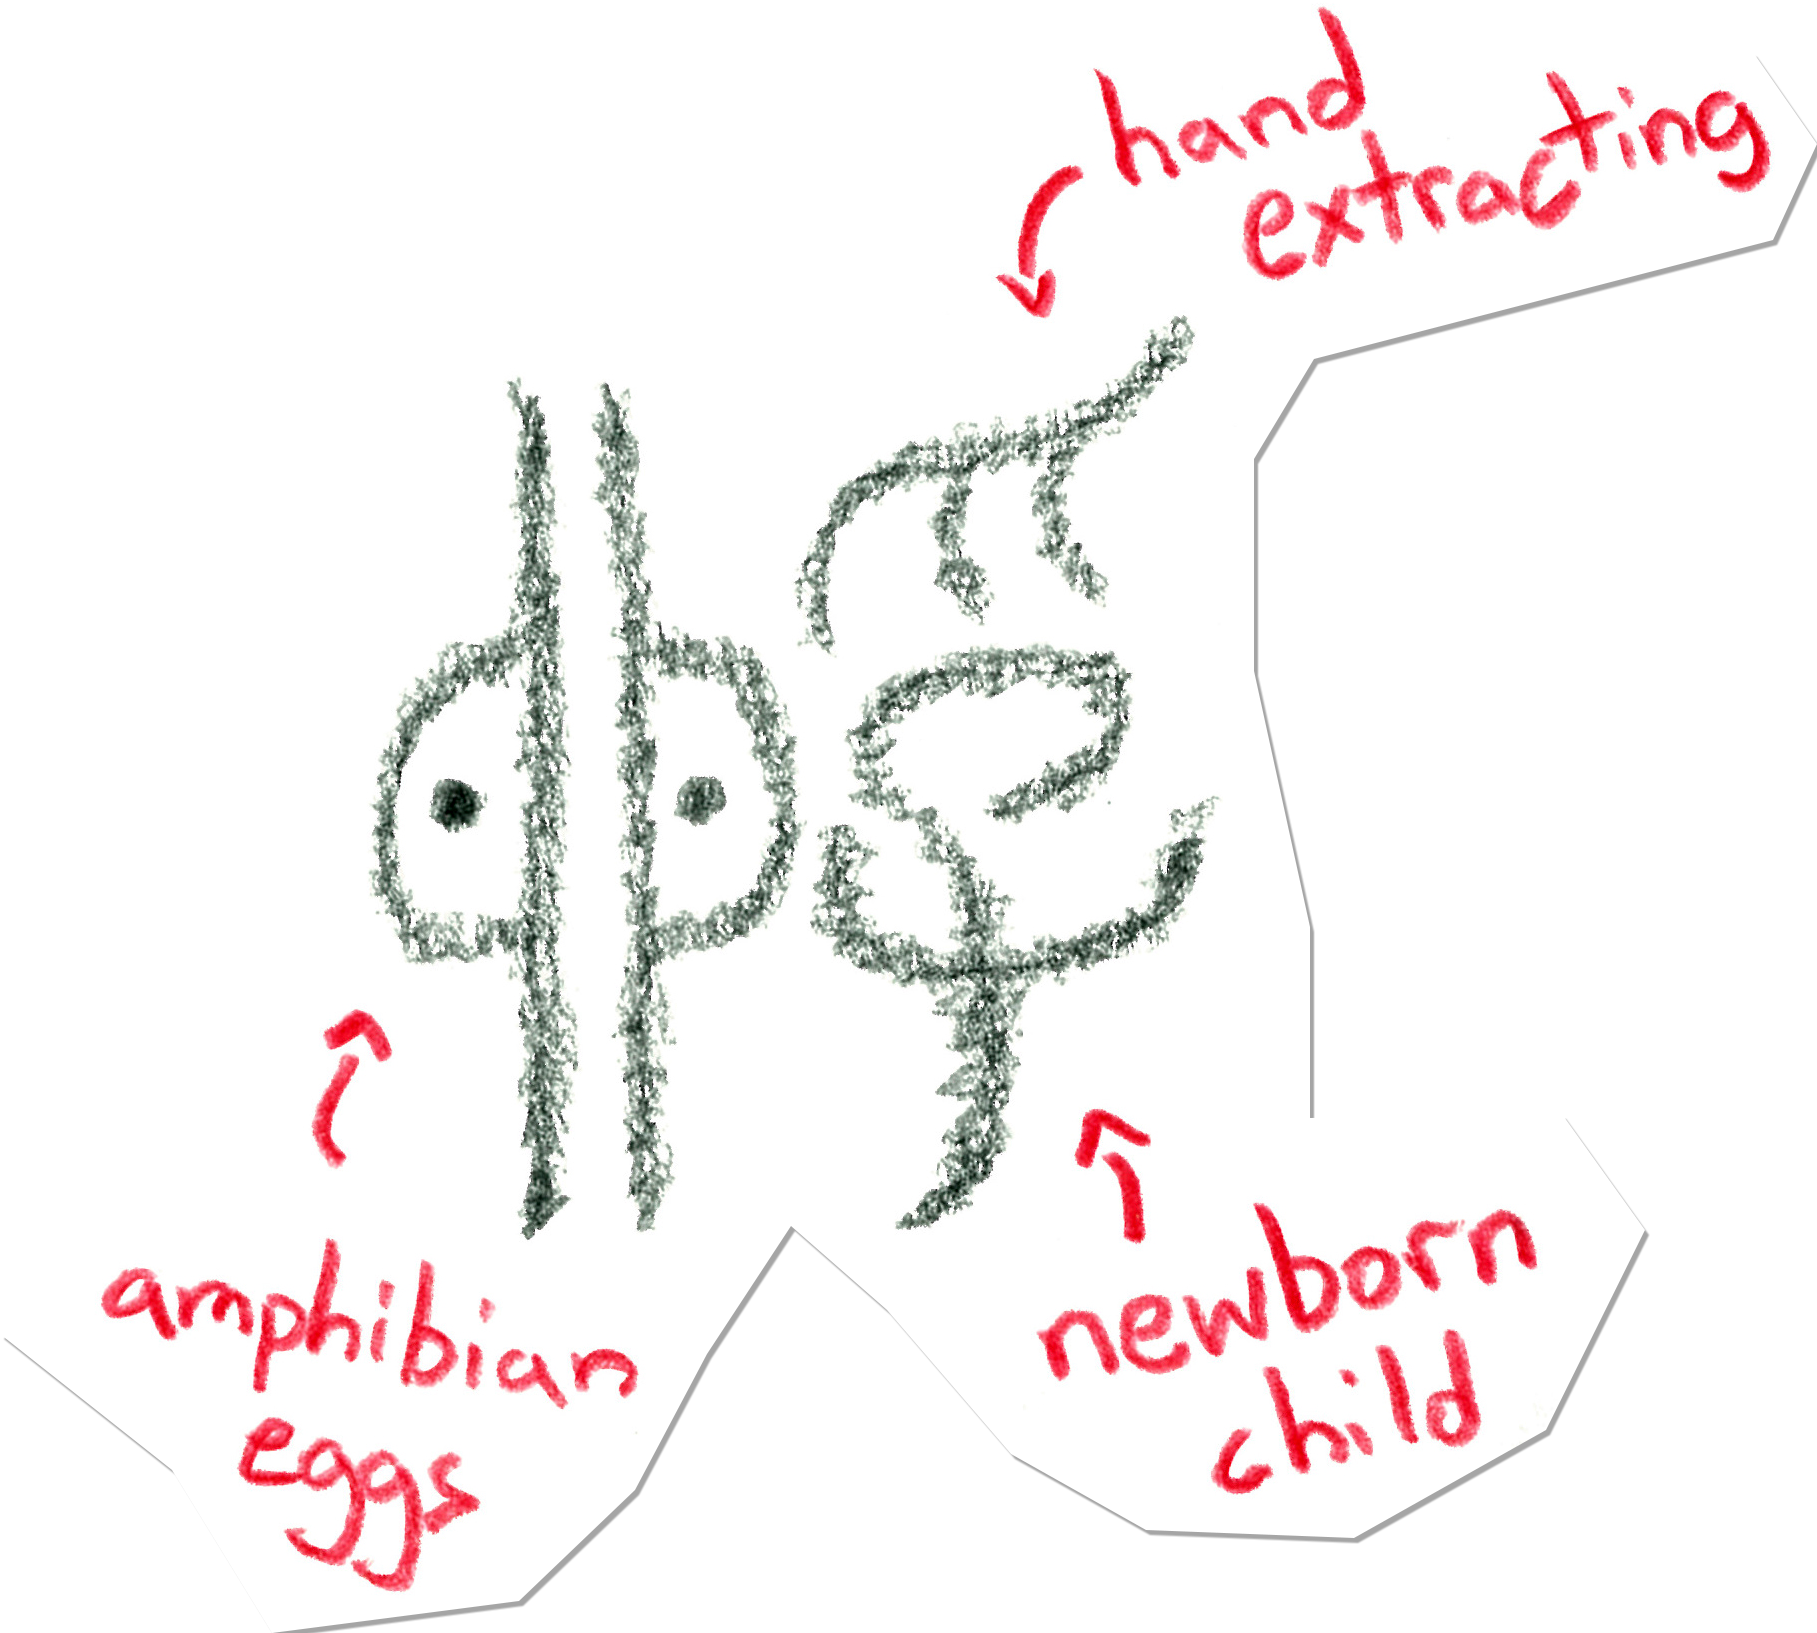 hand
extracting
孵
amphibian
eggs
newborn
child